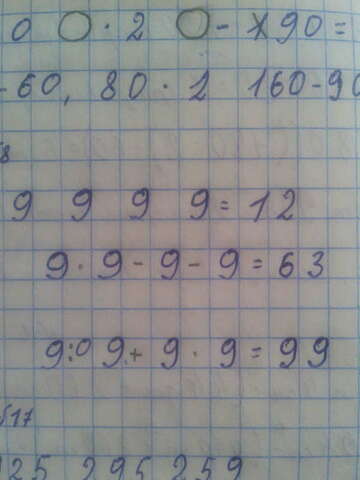 0 ○ · 2 ○ - 90 =
-60, 80 · 2 160-90
8
9 9 9 9 = 12
9 · 9 - 9 - 9 = 63
9 : 9 + 9 · 9 = 99
№17
925 295 259